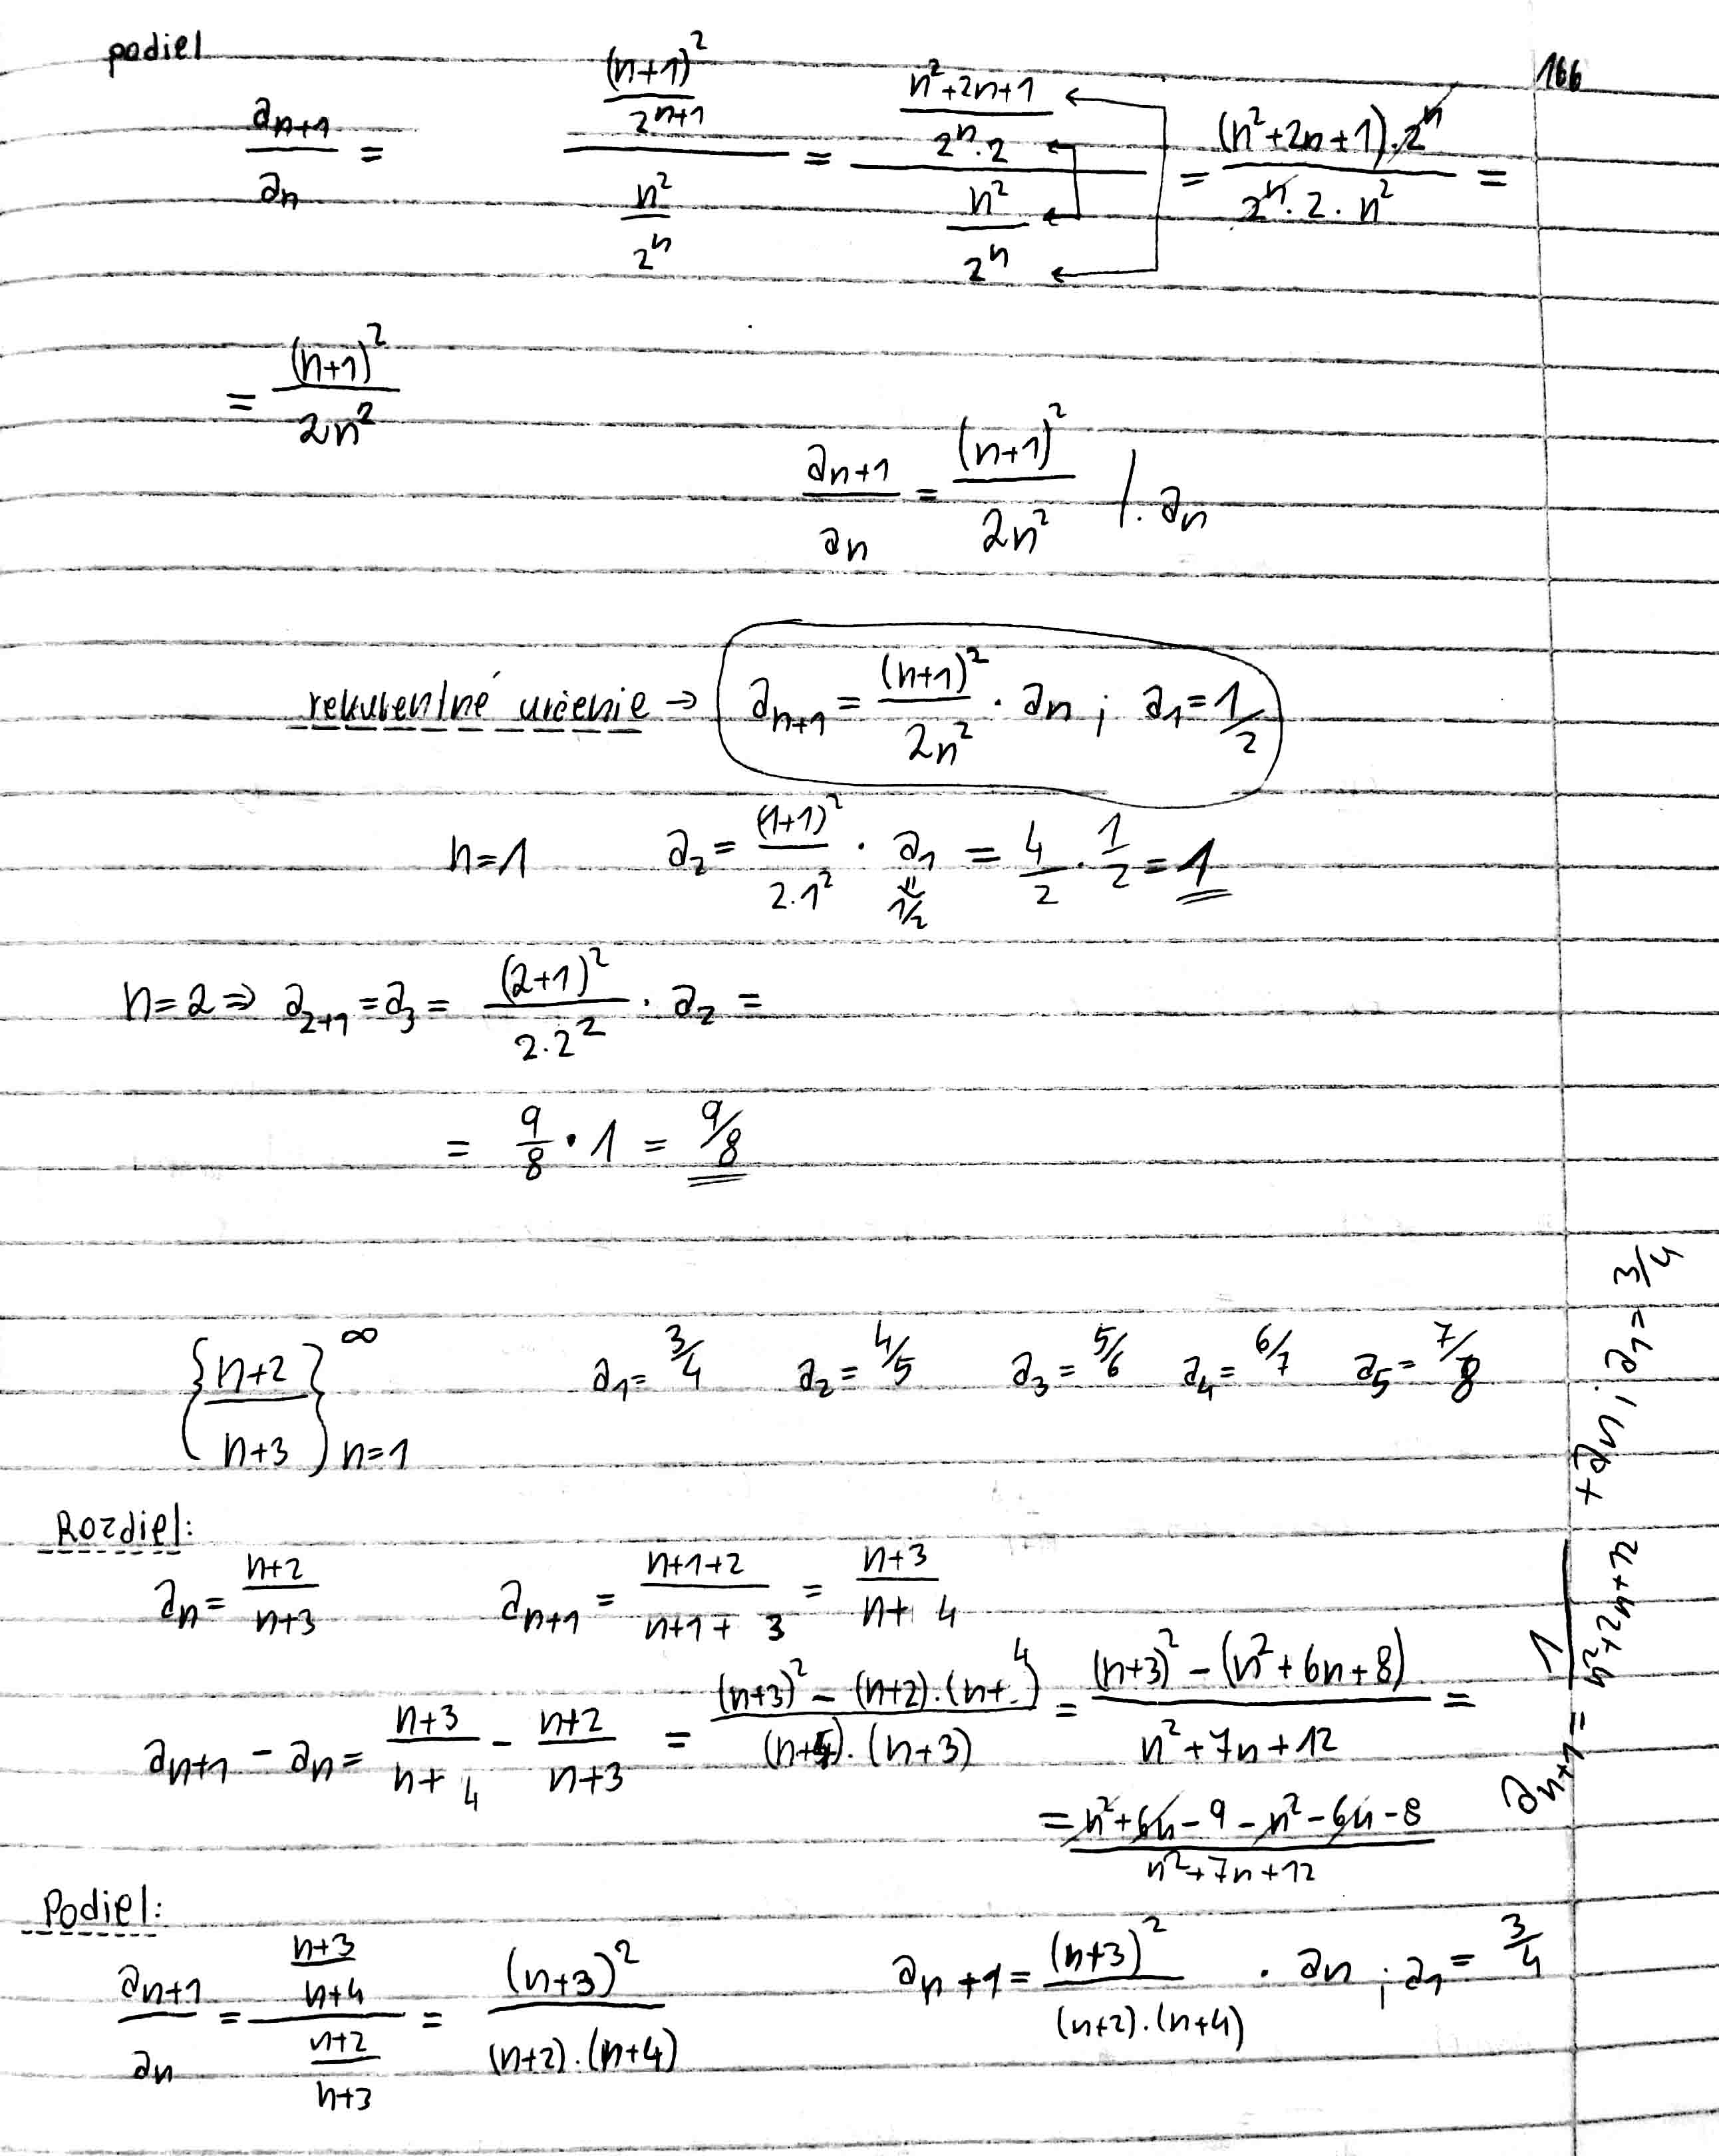 podiel
166
a_{n+1}/a_n = ((n+1)^2/2^{n+1})/(n^2/2^n) = ((n^2+2n+1)/(2^n·2))/(n^2/2^n) = ((n^2+2n+1)·2^n)/(2^n·2·n^2) =
= (n+1)^2/2n^2
a_{n+1}/a_n = (n+1)^2/2n^2 /·a_n
rekurentné určenie → a_{n+1} = (n+1)^2/2n^2 · a_n ; a_1 = 1/2
n=1 a_2 = (1+1)^2/2·1^2 · a_1 = 4/2 · 1/2 = 1
" 1/2
n=2 ⇒ a_{2+1} = a_3 = (2+1)^2/2·2^2 · a_2 =
= 9/8 · 1 = 9/8
{(n+2)/(n+3)}_{n=1}^∞ a_1 = 3/4 a_2 = 4/5 a_3 = 5/6 a_4 = 6/7 a_5 = 7/8
Rozdiel:
a_n = (n+2)/(n+3) a_{n+1} = (n+1+2)/(n+1+3) = (n+3)/(n+4)
a_{n+1} - a_n = (n+3)/(n+4) - (n+2)/(n+3) = ((n+3)^2 - (n+2)·(n+4))/((n+4)·(n+3)) = ((n+3)^2 - (n^2+6n+8))/(n^2+7n+12) =
= (n^2+6n-9-n^2-6n-8)/(n^2+7n+12)
a_{n+1} = 1/(n^2+2n+12) + a_n ; a_1 = 3/4
Podiel:
a_{n+1}/a_n = ((n+3)/(n+4))/((n+2)/(n+3)) = (n+3)^2/((n+2)·(n+4)) a_{n+1} = (n+3)^2/((n+2)·(n+4)) · a_n ; a_1 = 3/4